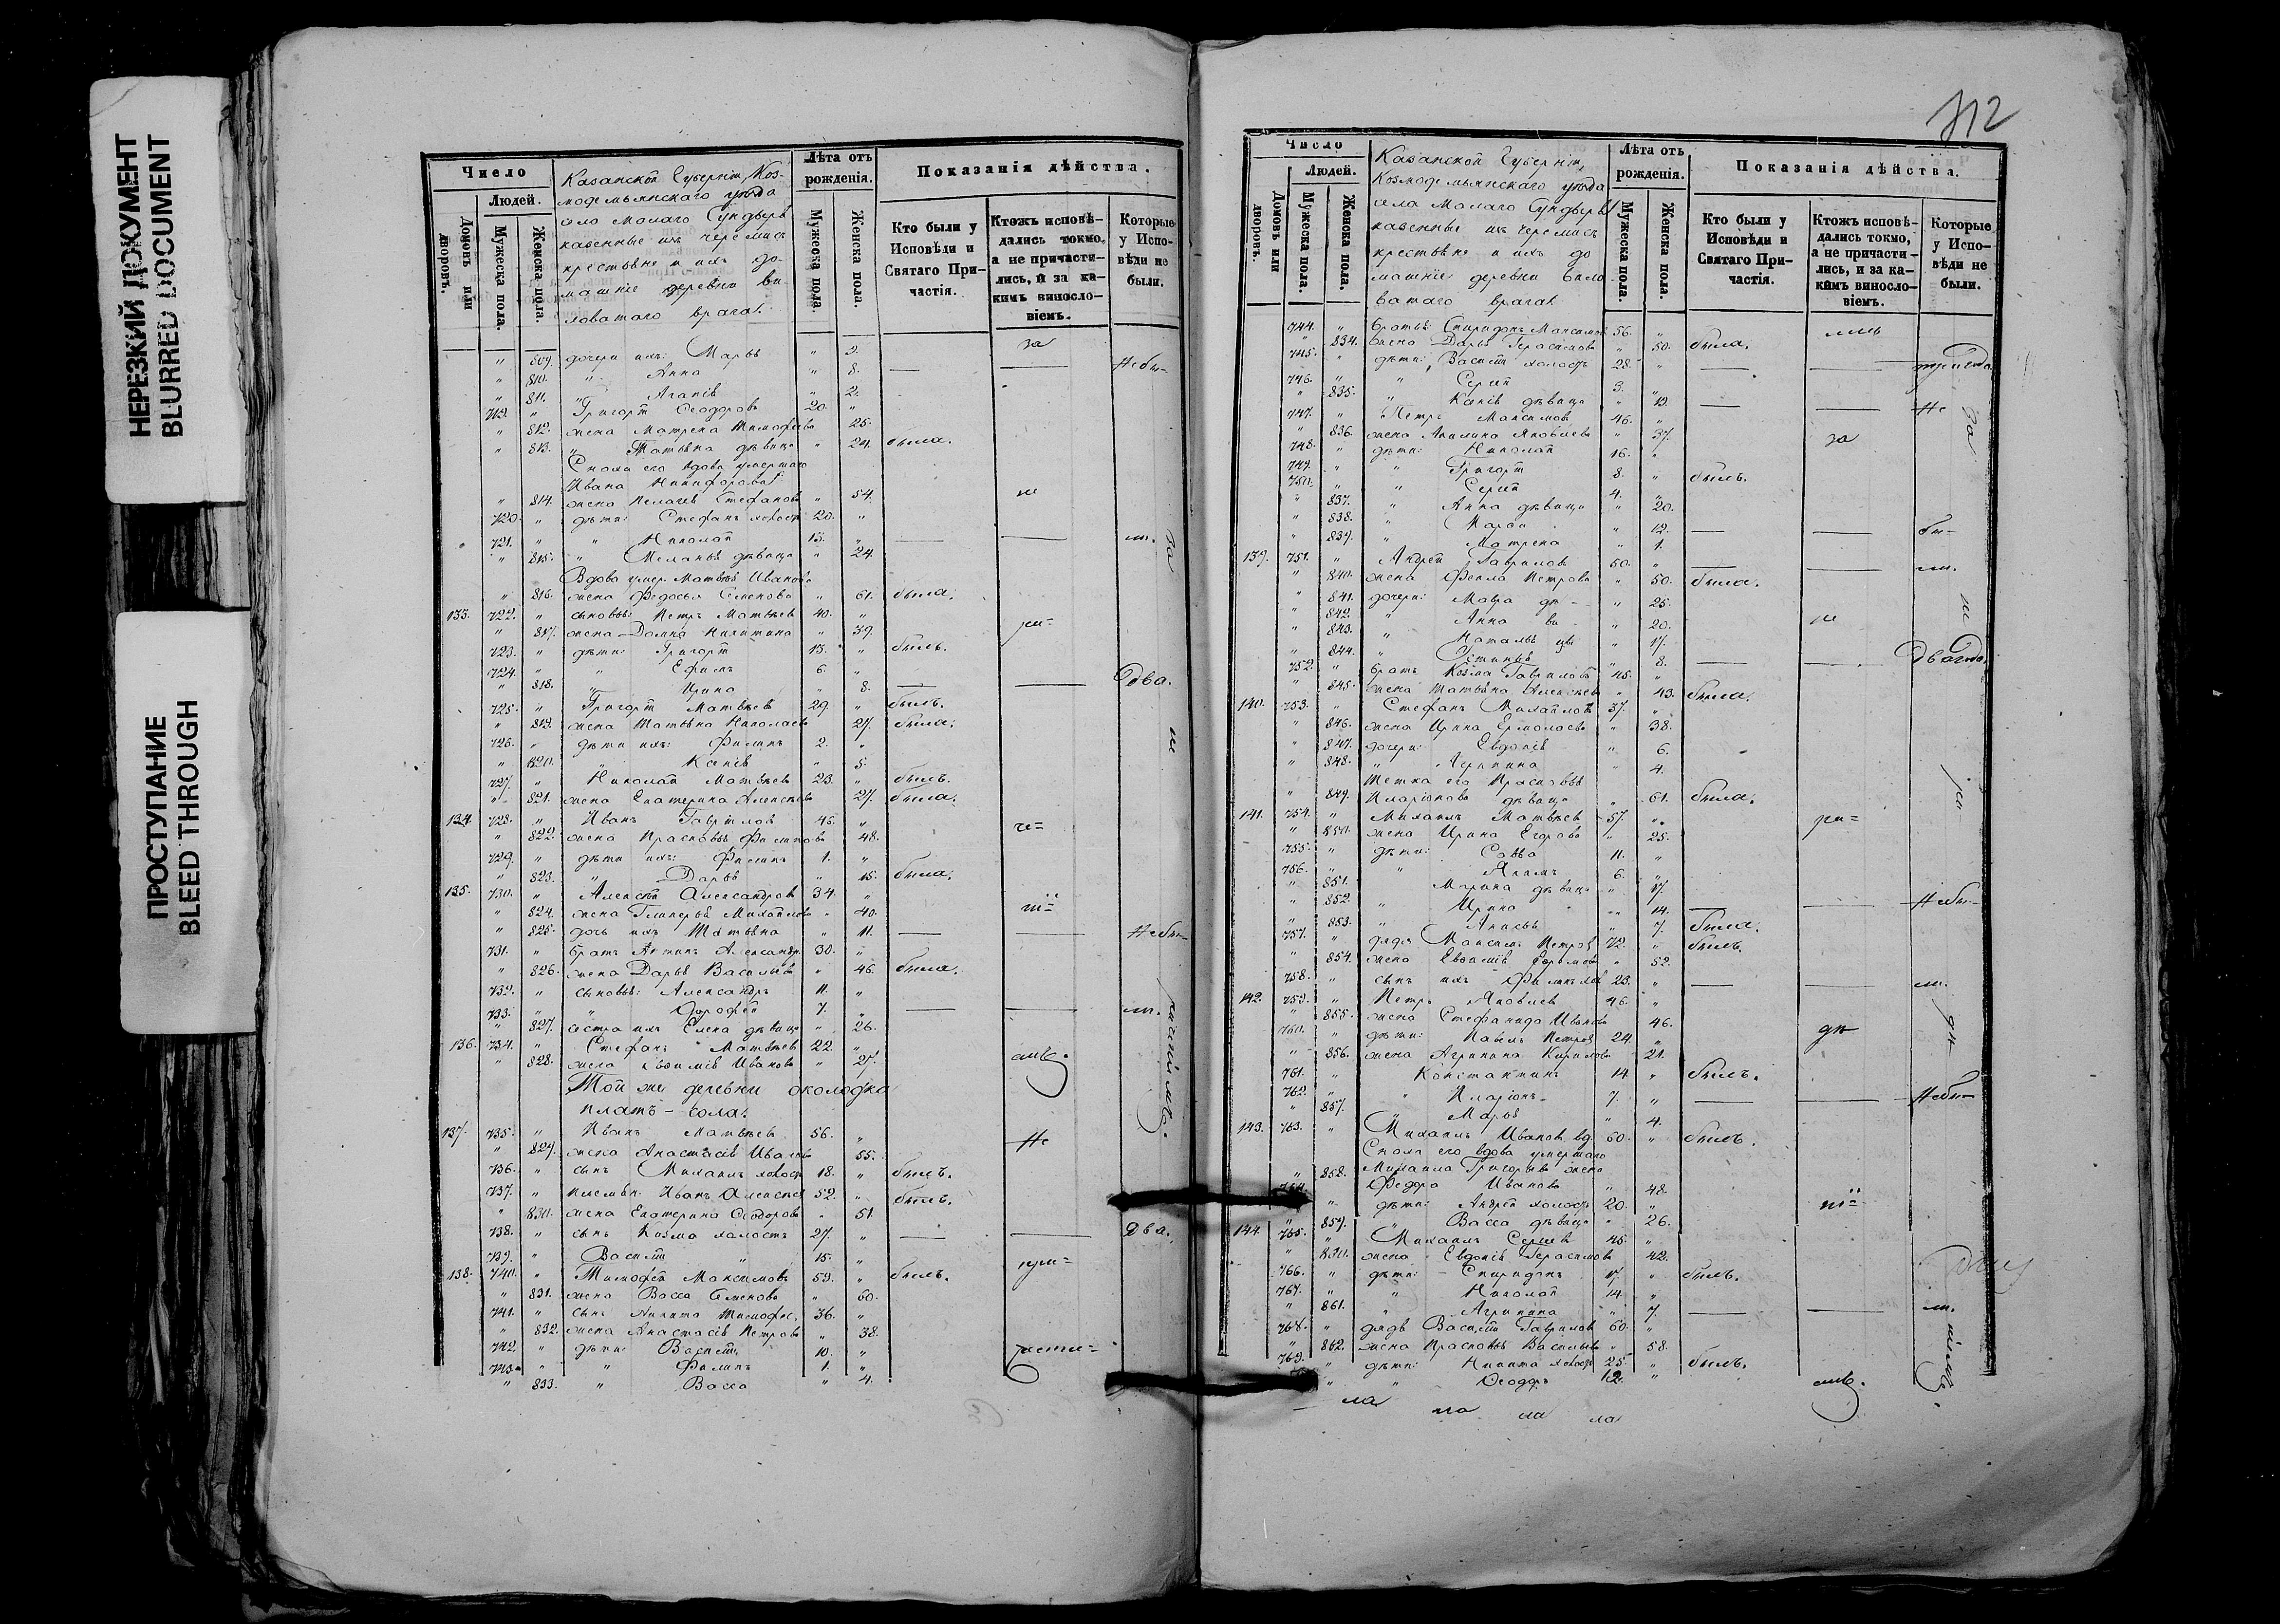 НЕРЕЗКИЙ ДОКУМЕНТ
BLURRED DOCUMENT
ПРОСТУПАНИЕ
BLEED THROUGH
Число
Людей.
Домовъ или дворовъ.
Мужеска пола.
Женска пола.
Казанской Губерніи, Коз-
модемьянскаго уѣзда
села Малаго Сундыря
казенные изъ черемисъ
крестьяне и ихъ до-
машніе деревни Ви-
ловатаго врага.
Лѣта отъ рожденія.
Мужеска пола.
Женска пола.
Показанія дѣйства.
Кто были у Исповѣди и Святаго При-частія.
Ктожъ исповѣ-дались токмо, а не причасти-лись, и за ка-кимъ винослo-віемъ.
Которые у Испо-вѣди не были.
" 809. дочери ихъ: Марья " 9. за
" 810. " Анна " 8. — — Небы-
" 811. " Агапія " 2.
719. " Григорій Ѳеодоровъ 20. "
" 812. жена Матрена Тимофеева 25.
" 813. " Татьяна дѣвица " 24. была.
Сноха его вдова умершаго
Ивана Никифорова
" 814. жена Пелагея Стефанова " 54. не
720. " дѣти: Стефанъ холостъ 20. "
721. " " Николай 13. " — — ли.
" 815. " Меланья дѣвица " 24.
Вдова умер. Матвѣя Иванова
" 816. жена Федосья Семенова " 61. была.
133. 722. " сыновья: Петръ Матвѣевъ 40. "
" 817. жена Домна Никитина " 39. ра-
723. " дѣти: Григорій 13. " былъ.
724. " " Ефимъ 6. "
" 818. " Ирина " 8. — — Два.
725. " Григорій Матвѣевъ 29. " былъ.
" 819. жена Татьяна Николаева 27. была.
726. " дѣти ихъ: Филипъ 2. "
" 820. " Ксенія " 5.
727. " Николай Матвѣевъ 23. " былъ.
" 821. жена Екатерина Алексѣева 27. была.
134. 728. " Иванъ Гавриловъ 45. " че-
" 822. жена Прасковья Филипова 48.
729. " дѣти ихъ: Филипъ 1. "
" 823. " Дарья " 15. была.
135. 730. " Алексѣй Александровъ 34. "
" 824. жена Гликерья Михайлова " 40.
" 825. дочь ихъ Татьяна " 11. — — Небы-
731. " братъ Антипъ Александр. 30. "
" 826. жена Дарья Васильева " 46. была.
732. " сыновья: Александръ 11. "
733. " " Дорофей 7. " — — ли.
" 827. сестра ихъ Елена дѣвица " 26.
136. 734. " Стефанъ Матвѣевъ 22. "
" 828. жена Евфимія Иванова " 27.
Той же деревни околодка
137. 735. " Иванъ Матвѣевъ 56. " Не
" 829. жена Анастасія Иванова 55.
736. " сынъ Михаилъ холостъ 18. " былъ.
737. " племян. Иванъ Алексѣевъ 52. " былъ.
" 830. жена Екатерина Ѳеодорова " 51.
738. " сынъ Козма холостъ 27. " — — Два.
739. " Василій " 15. "
138. 740. " Тимофей Максимовъ 59. " былъ. при-
" 831. жена Васса Семенова " 60.
741. " сынъ Никита Тимофее. 36. "
" 832. жена Анастасія Петрова " 38.
742. " дѣти: Василій 10. "
743. " " Филипъ 1. "
" 833. " Васса " 4.
312
Число
Людей.
Домовъ или дворовъ.
Мужеска пола.
Женска пола.
Казанской Губерніи,
Козмодемьянскаго уѣзда
села Малаго Сундыря
казенные изъ черемисъ
крестьяне и ихъ до
машніе деревни Вило
ватаго врага.
Лѣта отъ рожденія.
Мужеска пола.
Женска пола.
Показанія дѣйства.
Кто были у Исповѣди и Святаго При-частія.
Ктожъ исповѣ-дались токмо, а не причасти-лись, и за ка-кимъ винослo-віемъ.
Которые у Испо-вѣди не были.
744. " братья: Спиридонъ Максимовъ 56. "
" 834. жена Дарья Герасимова " 50. была.
745. " дѣти: Василій холостъ 28. " — — три года
746. " " Сергій 3. "
" 835. " Ксенія дѣвица " 19. — — Не
747. " Петръ Максимовъ 46. "
" 836. жена Акилина Яковлева " 37. за
748. " дѣти: Николай 16. "
749. " " Григорій 8. " былъ.
750. " " Сергій 4. "
" 837. " Анна дѣвица " 20.
" 838. " Марѳа " 12. — — бы-
" 839. " Матрена " 1.
139. 751. " Андрей Гавриловъ 50. " — — ли.
" 840. жена Фекла Петрова " 50. была.
" 841. дочери: Мавра дѣ- " 25.
" 842. " Анна ви- " 20. не
" 843. " Наталья цы " 17.
" 844. " Устинья " 8. — — Два года.
752. " братъ Козма Гавриловъ 45. "
" 845. жена Татьяна Алексѣева " 43. была.
140. 753. " Стефанъ Михайловъ 37. "
" 846. жена Ирина Ермолаева " 38.
" 847. дочери: Евдокія " 6.
" 848. " Агрипина " 4.
Тетка его Прасковья
" 849. Иларіонова дѣвица " 61. была.
141. 754. " Михаилъ Матвѣевъ 57. " ра-
" 850. жена Ирина Егорова " 25.
755. " дѣти: Савва 11. "
756. " 6. "
" 851. Марина дѣвица " 17.
" 852. " Ирина " 14. — — Небы-
" 853. " Анисья " 7. была.
757. " дядя Максимъ Петровъ 72. " былъ.
" 854. жена Евфимія " 52.
758. " сынъ ихъ 23. " — — ли.
142. 759. " Петръ Яковлевъ 46. "
" 855. жена Стефанида Иванова 46.
760. " дѣти: Павелъ Петровъ 24. "
" 856. жена Агрипина Кирилова 21.
761. " Константинъ 14. " былъ.
762. " " Иларіонъ 7. " — — Небы-
" 857. " Марья " 4.
143. 763. " Михаилъ Ивановъ вд. 60. " былъ.
Сноха его вдова умершаго
" 858. Михаила Григорьева жена
Федора Иванова " 48.
764. " дѣти: Андрей холостъ 20. "
" 859. " Васса дѣвица " 26.
144. 765. " Михаилъ Сергіевъ 45. "
" 860. жена Евдокія Герасимова 42.
766. " дѣти: Спиридонъ 17. " былъ.
767. " " Николай 14. "
" 861. " Агрипина " 7. — — ли.
768. " дядя Василій Гавриловъ 60. "
" 862. жена Прасковья Васильева " 58.
769. " дѣти: Никита холостъ 25. " былъ.
" " Ѳеодоръ 12. "